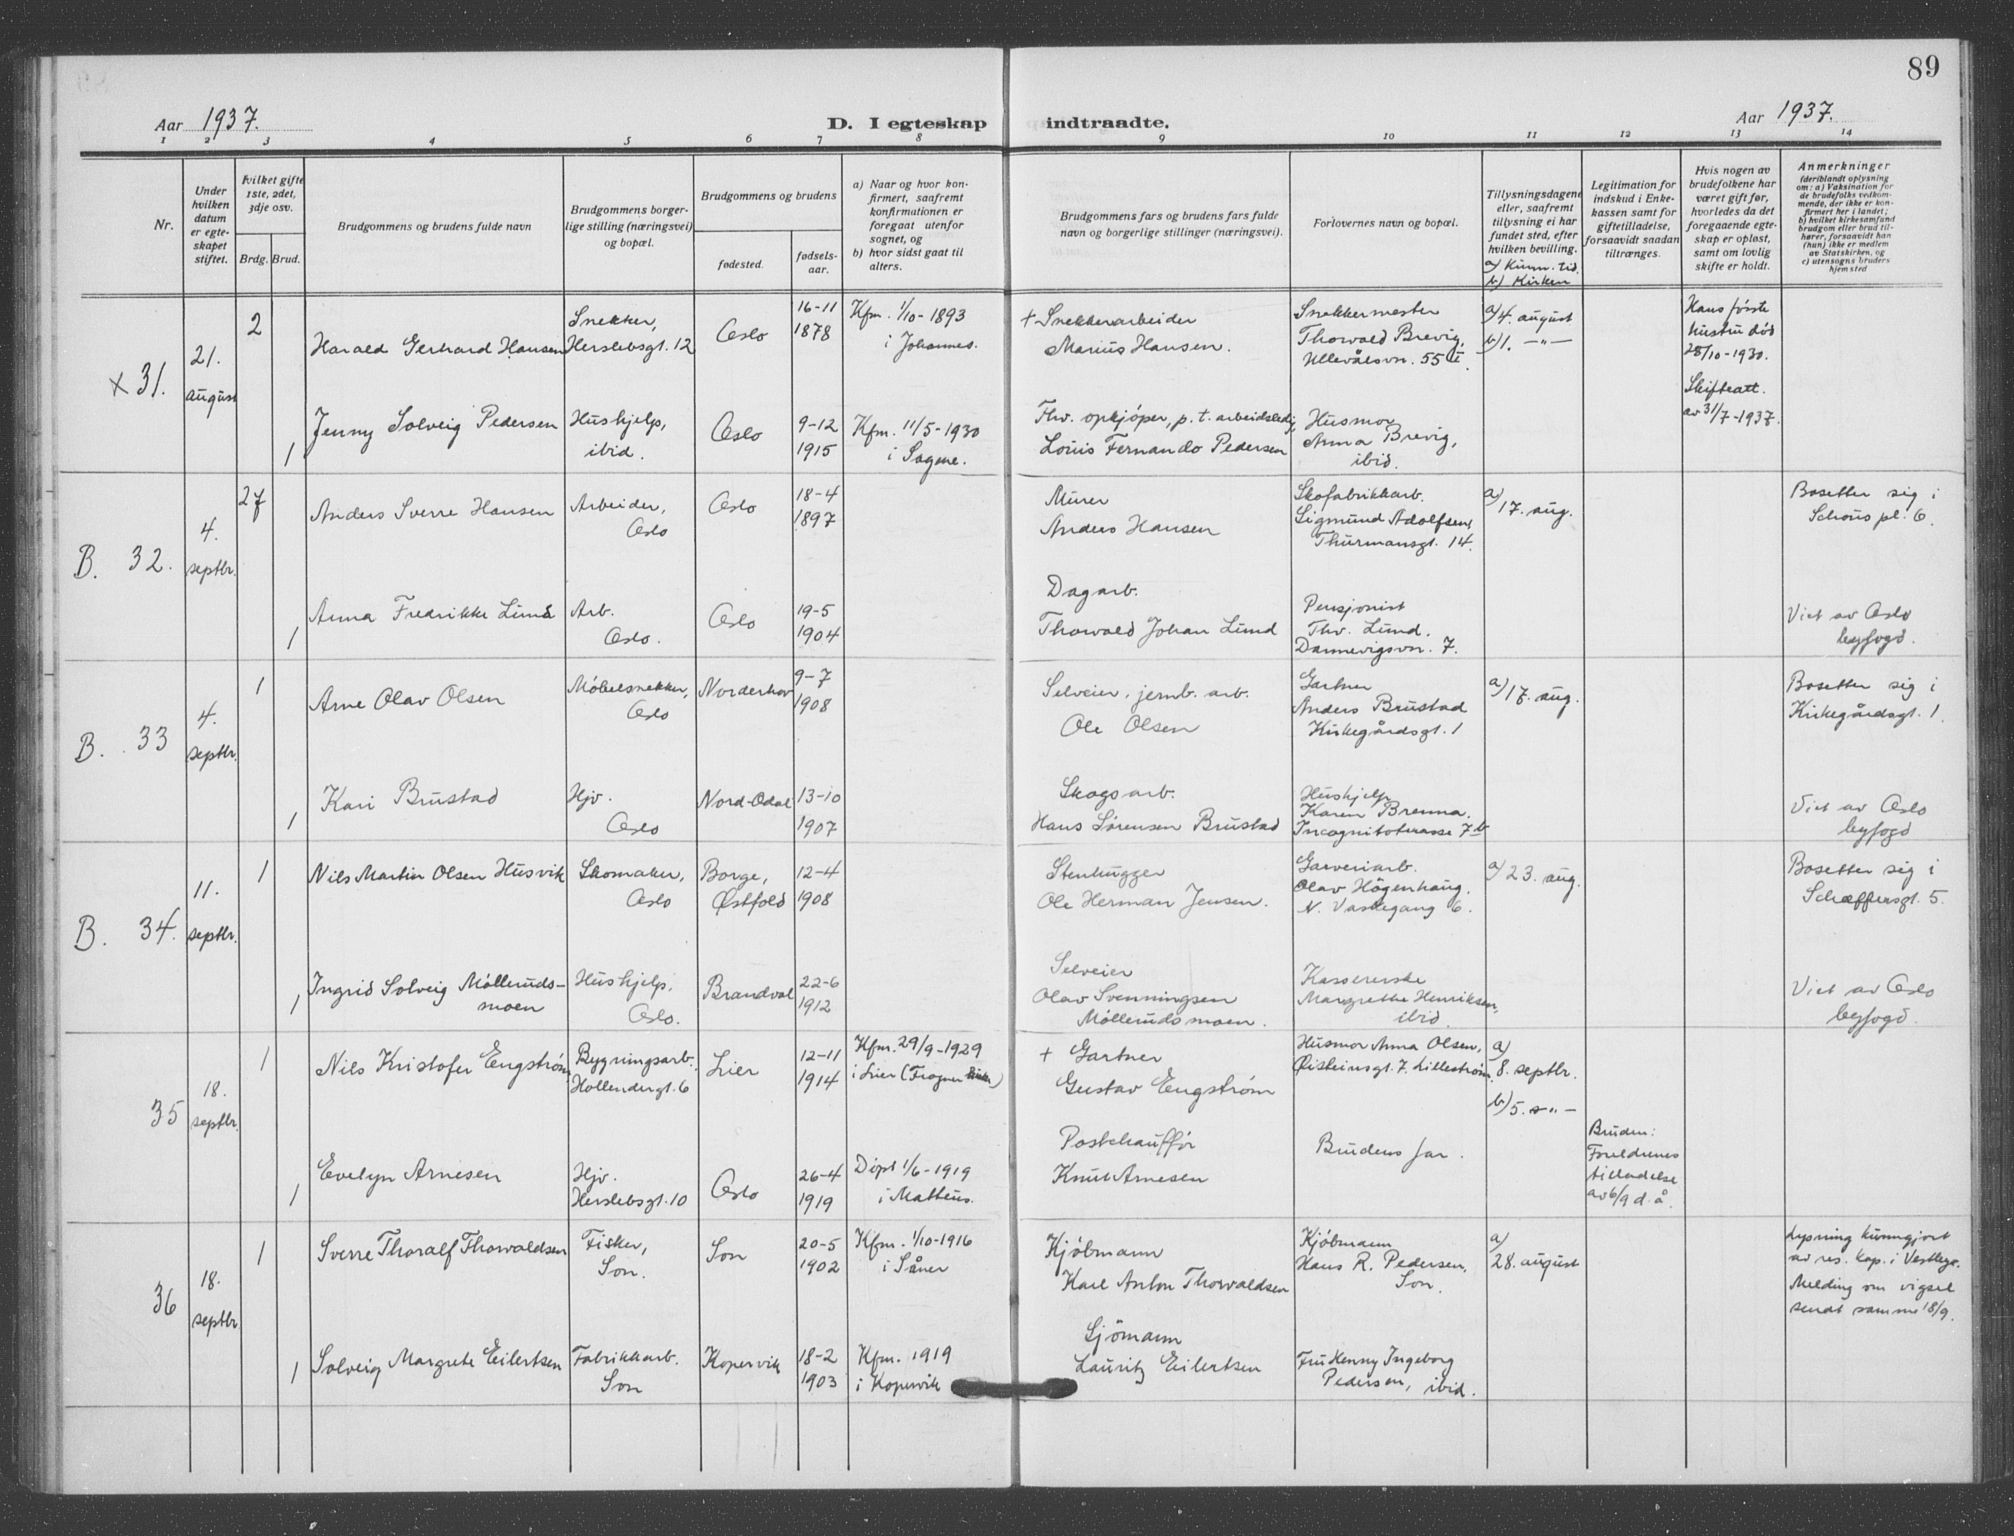 89
Aar 1937.
D. I egteskap indtraadte.
Aar 1937.
1 2 3 4 5 6 7 8 9 10 11 12 13 14
Nr.
Under
hvilken
datum
er egte-
skapet
stiftet.
Hvilket gifte
1ste, 2det,
3dje osv.
Brdg. Brud.
Brudgommens og brudens fulde navn
Brudgommens borger-
lige stilling (næringsvei)
og bopæl.
Brudgommens og brudens
fødested.
fødsels-
aar.
a) Naar og hvor kon-
firmert, saafremt
konfirmationen er
foregaat utenfor
sognet, og
b) hvor sidst gaat til
alters.
Brudgommens fars og brudens fars fulde
navn og borgerlige stillinger (næringsvei).
Forlovernes navn og bopæl.
Tillysningsdagene
eller, saafremt
tillysning ei har
fundet sted, efter
hvilken bevilling.
a) Kunn. tid.
b) Kirken
Legitimation for
indskud i Enke-
kassen samt for
giftetilladelse,
forsaavidt saadan
tiltrænges.
Hvis nogen av
brudefolkene har
været gift før,
hvorledes da det
foregaaende egte-
skap er opløst,
samt om lovlig
skifte er holdt.
Anmerkninger
(deriblandt oplysning
om: a) Vaksination for
de brudefolks vedkom-
mende, der ikke er kon-
firmert her i landet;
b) hvilket kirkesamfund
brudgom eller brud til-
hører, forsaavidt han
(hun) ikke er medlem
av Statskirken, og
c) utensogns bruders
hjemsted
x 31.
21.
august
2
Harald Gerhard Hansen
Snekker,
Herslebsgt. 12
Oslo
16-11
1878
Kfm. 1/10-1893
i Johannes.
+ Snekkerarbeider
Marius Hansen.
Snekkermester
Thorvald Brevig,
Ullevålsvn. 55 I.
a) 4. august
b) 1. -"-
Hans første
hustru død
28/10-1930.
Skifteatt.
av 31/7-1937.
1
Jenny Solveig Pedersen
Hushjelp,
ibid.
Oslo
9-12
1915
Kfm. 11/5-1930
i Sagene.
Fhv. opkjøper, p.t. arbeidsledig,
Louis Fernando Pedersen
Husmor
Anna Brevig,
ibid.
B. 32.
4.
septbr.
2
Anders Sverre Hansen
Arbeider,
Oslo
Oslo
18-4
1897
Murer
Anders Hansen
Skofabrikkarb.
Sigmund Adolfsen,
Thurmansgt. 14.
a) 17. aug.
Bosetter sig i
Schous pl. 6.
1
Anna Fredrikke Lund
Arb.
Oslo.
Oslo
19-5
1904
Dagarb.
Thorvald Johan Lund
Pensjonist
Thv. Lund.
Dannevigsvn. 7.
Viet av Oslo
byfogd.
B. 33
4.
septbr.
1
Arne Olav Olsen
Møbelsnekker,
Oslo
Norderhov
9-7
1908
Selveier, jernb. arb.
Ole Olsen
Gartner
Anders Brustad
Kirkegårdsgt. 1
a) 17. aug.
Bosetter sig i
Kirkegårdsgt. 1.
1
Kari Brustad
Hjv.
Oslo
Nord-Odal
13-10
1907
Skogsarb.
Hans Sørensen Brustad
Hushjelp
Karen Brenna.
Incognitoterasse 7b
Viet av Oslo
byfogd
B. 34.
11.
septbr.
1
Nils Martin Olsen Husvik
Skomaker,
Oslo
Borge,
Østfold
12-4
1908
Stenhugger
Ole Herman Jensen.
Garveriarb.
Olav Högenhaug.
N. Vaskegang 6.
a) 23. aug.
Bosetter sig i
Schæffersgt. 5.
1
Ingrid Solveig Mølleruds-
moen
Hushjelp,
Oslo.
Brandval
22-6
1912
Selveier
Olav Svenningsen
Møllerudsmoen.
Kassererske
Margrethe Henriksen,
ibid.
Viet av Oslo
byfogd.
35
18.
septbr.
1
Nils Kristofer Engstrøm
Bygningsarb.
Hollendergt. 6
Lier
12-11
1914
Kfm. 29/9-1929
i Lier (Frogner kirke)
+ Gartner
Gustav Engstrøm
Husmor Anna Olsen,
Øisteinsgt. 7. Lillestrøm.
a)
8. septbr.
b) 5. -"-
1
Evelyn Arnesen
Hjv.
Herslebsgt. 10
Oslo
26-4
1919
Døpt 1/6-1919
i Matteus.
Postchauffør
Knut Arnesen
Brudens far.
Bruden:
Foreldrenes
tilladelse
av 6/9 d. å.
36
18.
septbr
1
Sverre Thoralf Thorvaldsen
Fisker,
Son.
Son
20-5
1902
Kfm. 1/10-1916
i Såner
Kjøbmann
Karl Anton Thorvaldsen
Kjøbmann
Hans R. Pedersen,
Son.
a)
28. august
Lysning kunngjort
av res. kap. i Vestby.
Melding om vigsel
sendt samme 18/9.
1
Solveig Margrete Eilertsen
Fabrikkarb.
Son
Kopervik
18-2
1903
Kfm. 1919
i Kopervik
Sjömann
Lauritz Eilertsen
Fru Henny Ingeborg
Pedersen, ibid.